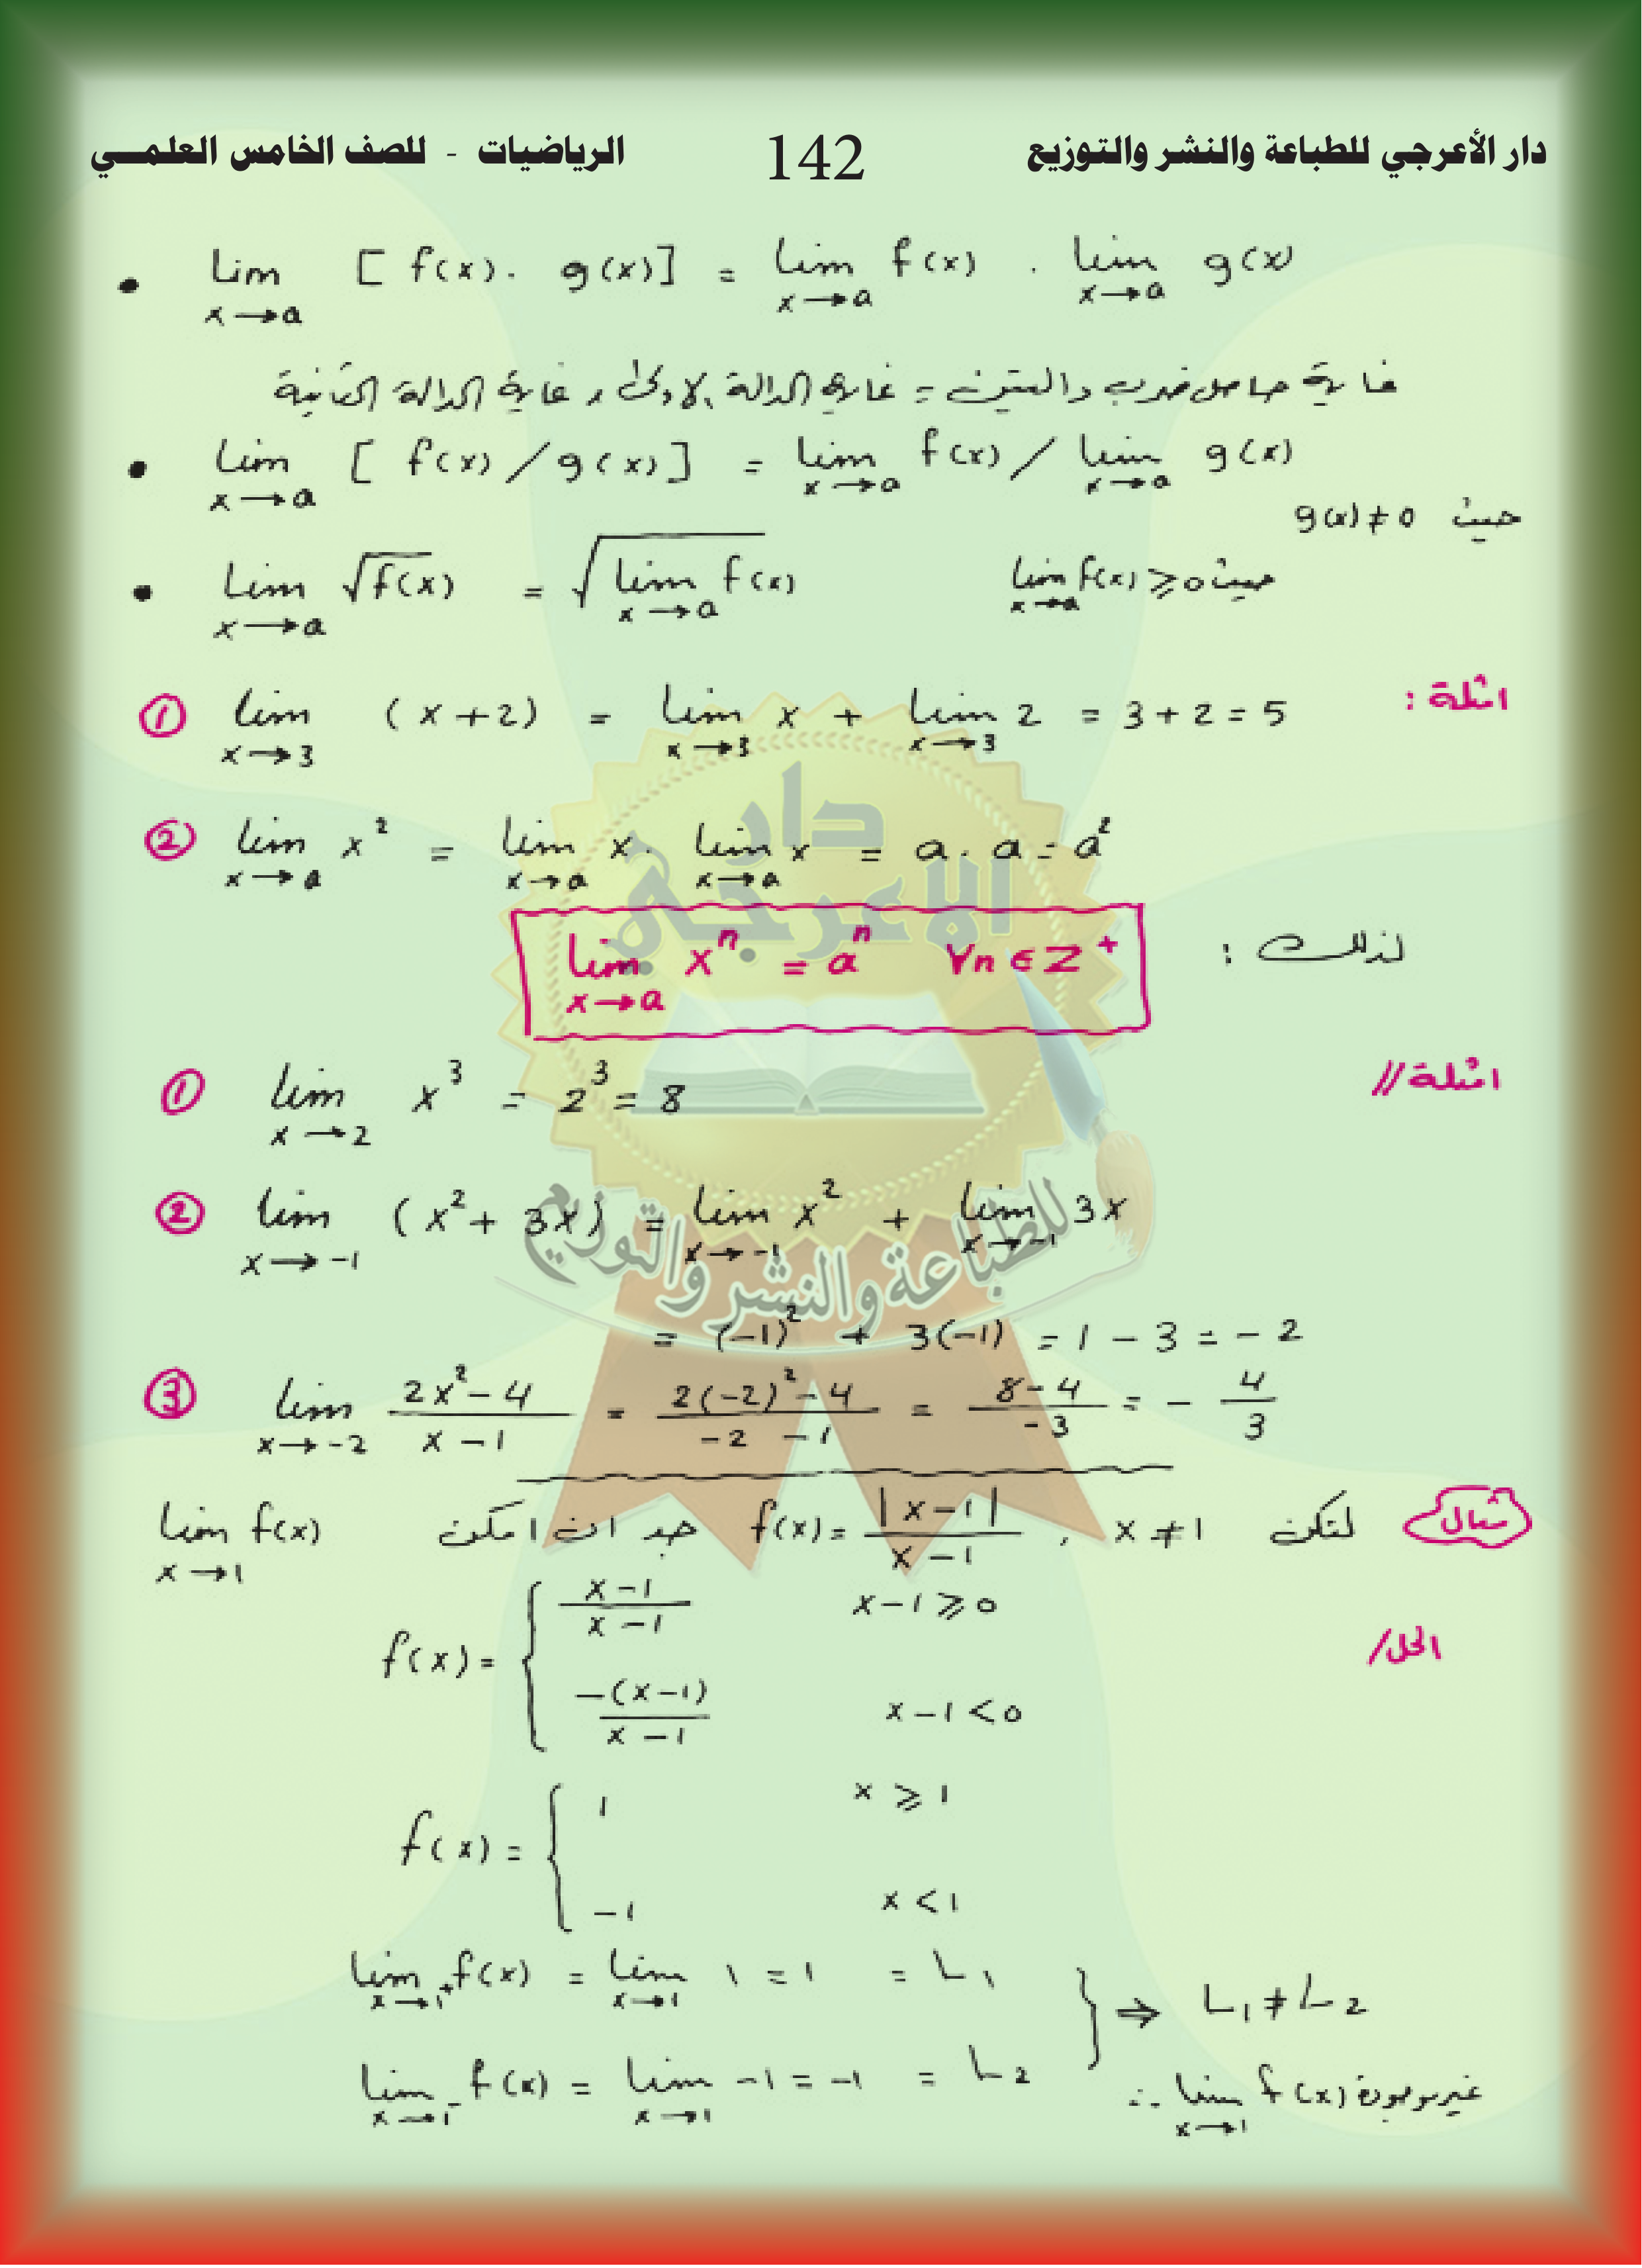 دار الأعرجي للطباعة والنشر والتوزيع 142 الرياضيات - للصف الخامس العلمـــي
• lim x→a [ f(x) . g(x) ] = lim x→a f(x) . lim x→a g(x)
غاية حاصل ضرب دالتين = غاية الدالة الاولى . غاية الدالة الثانية
• lim x→a [ f(x) / g(x) ] = lim x→a f(x) / lim x→a g(x)
حيث g(x) ≠ 0
• lim x→a √f(x) = √(lim x→a f(x)) حيث lim x→a f(x) ≥ 0
امثلة :
① lim x→3 (x+2) = lim x→3 x + lim x→3 2 = 3+2 = 5
② lim x→a x² = lim x→a x . lim x→a x = a . a = a²
لذلك : lim x→a xⁿ = aⁿ ∀n ∈ Z⁺
امثلة //
① lim x→2 x³ = 2³ = 8
② lim x→-1 (x² + 3x) = lim x→-1 x² + lim x→-1 3x
= (-1)² + 3(-1) = 1 - 3 = -2
③ lim x→-2 (2x²-4)/(x-1) = (2(-2)²-4)/(-2-1) = (8-4)/(-3) = - 4/3
مثال لتكن f(x) = |x-1|/(x-1) , x ≠ 1 جد ان امكن lim x→1 f(x)
الحل/
f(x) = { (x-1)/(x-1) x-1 ≥ 0
-(x-1)/(x-1) x-1 < 0
f(x) = { 1 x ≥ 1
-1 x < 1
lim x→1⁺ f(x) = lim x→1 1 = 1 = L₁
lim x→1⁻ f(x) = lim x→1 -1 = -1 = L₂
} ⇒ L₁ ≠ L₂
∴ lim x→1 f(x) غير موجودة
دار
الاعرجي
للطباعة والنشر والتوزيع